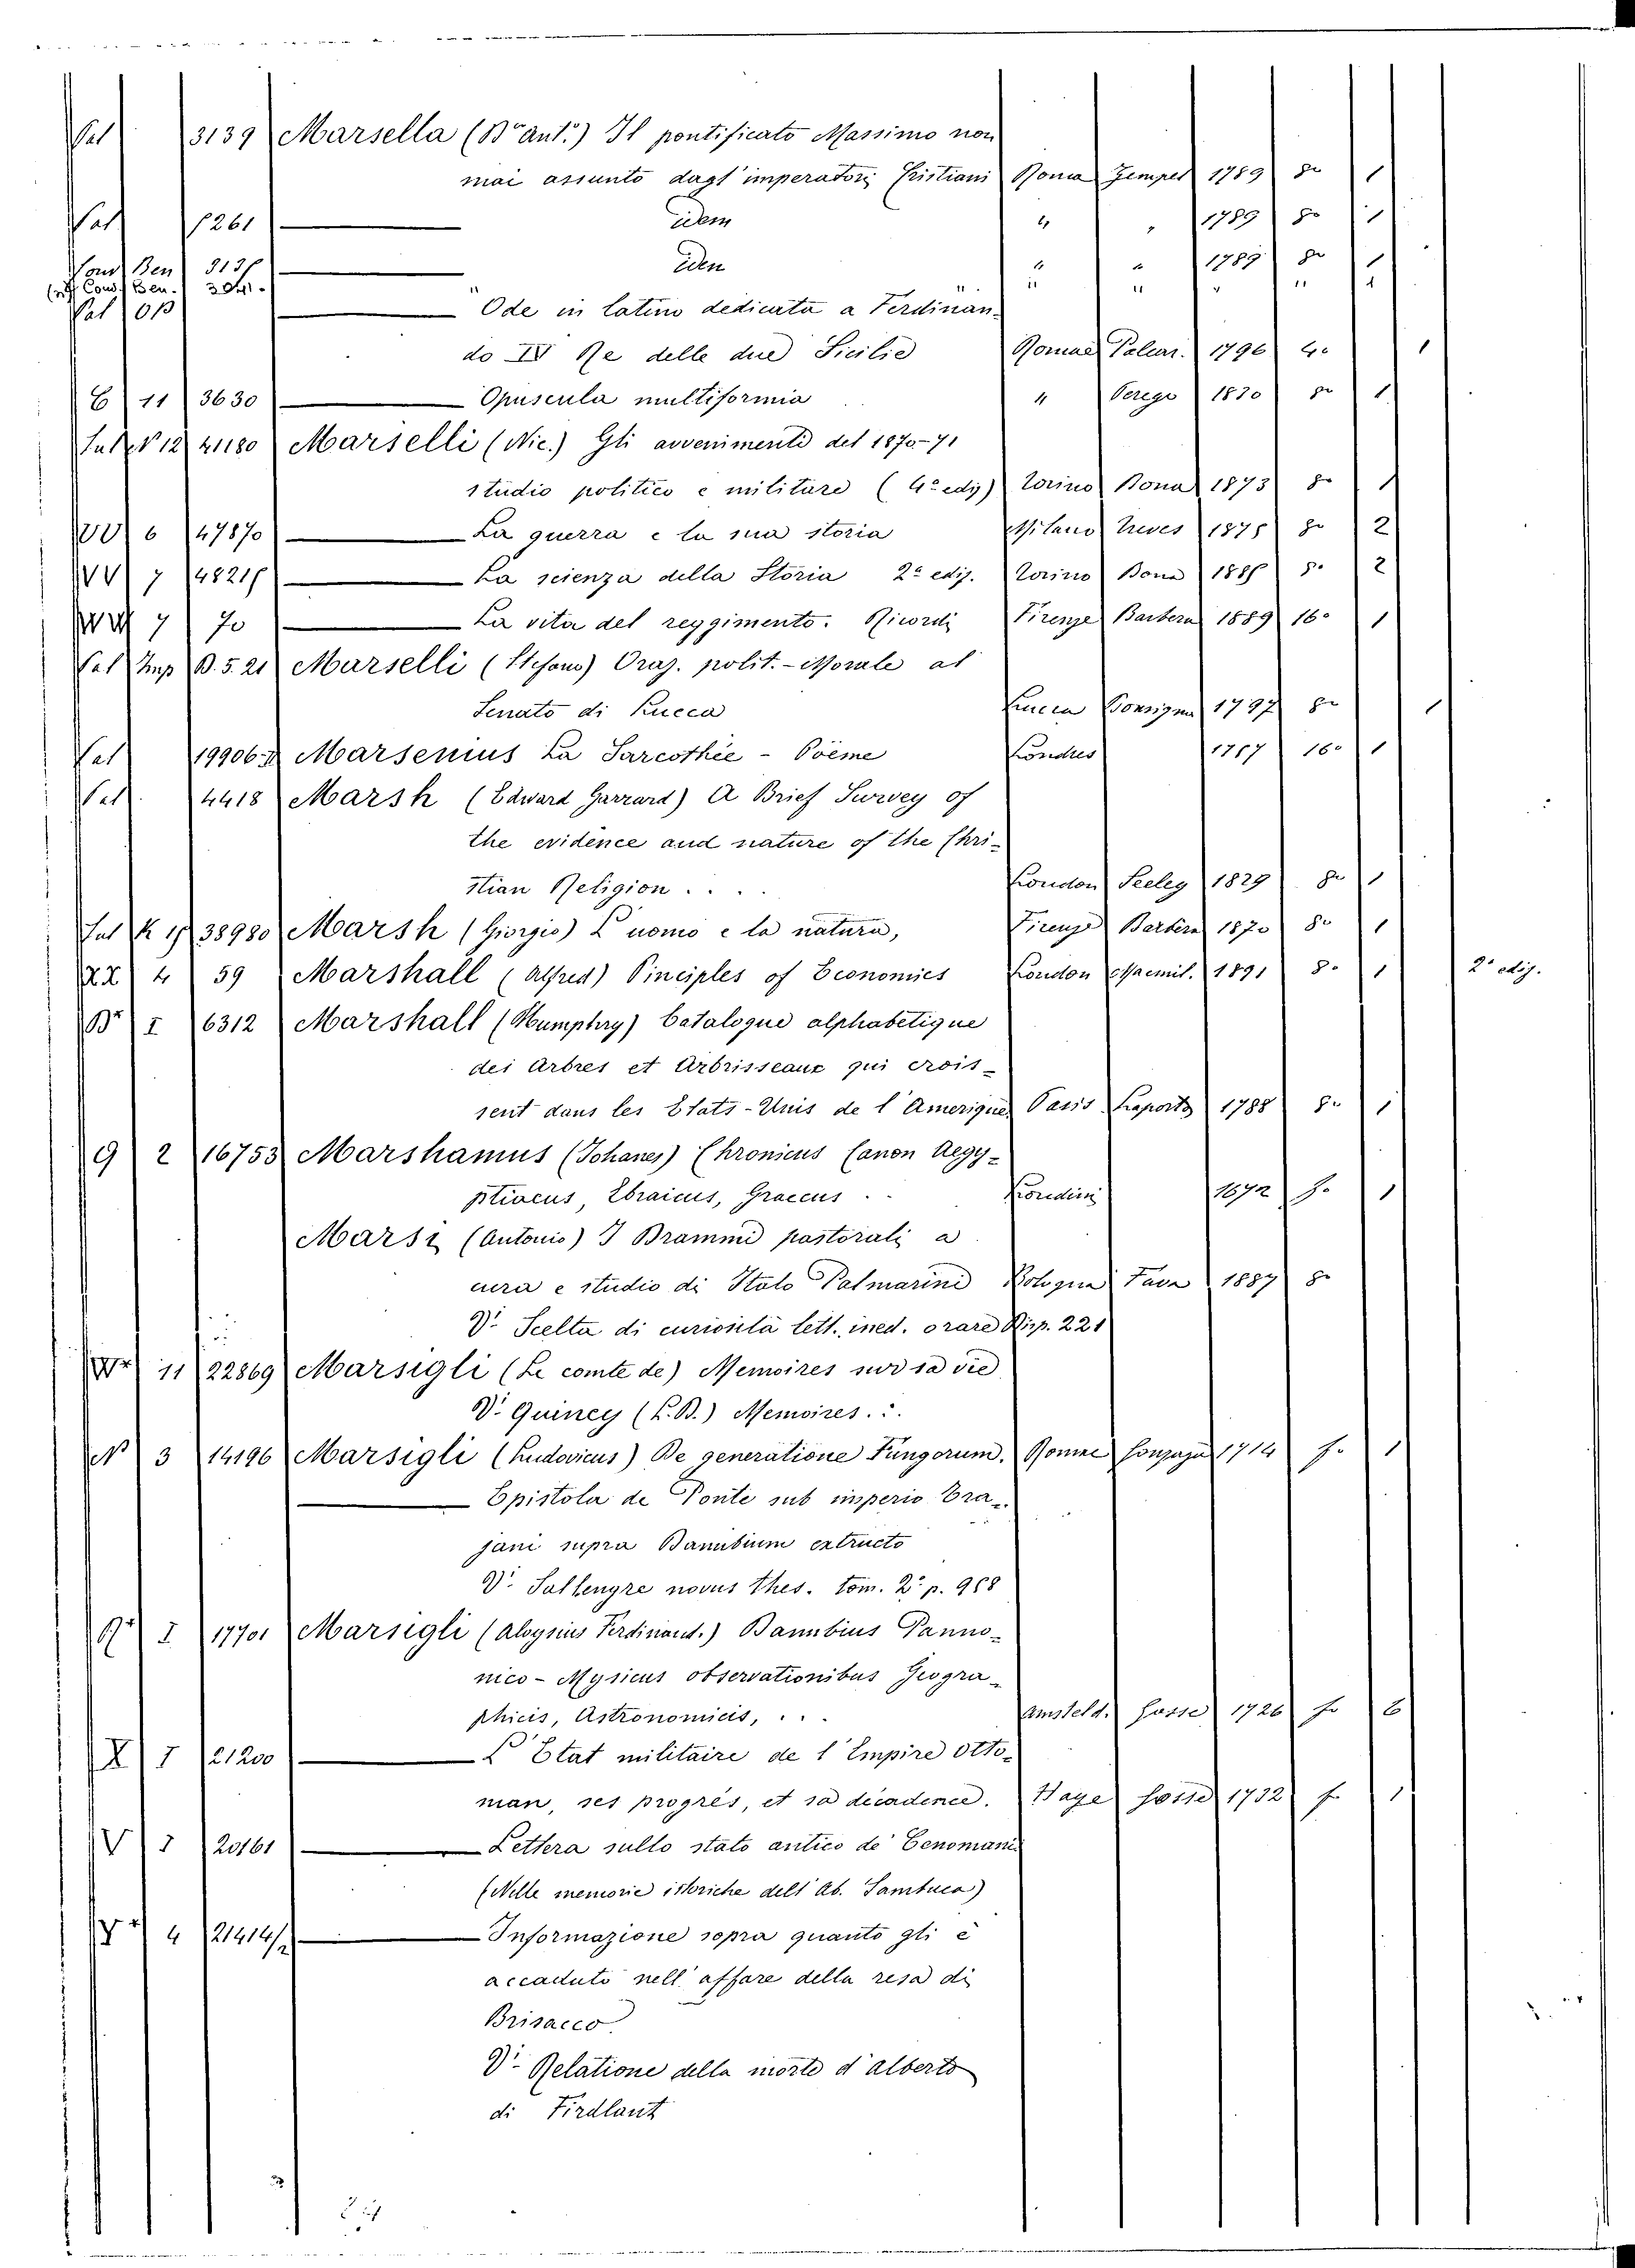 Sal 3139 Marsella (Bº Ant.º) Il pontificato Massimo non
mai assunto dagl'imperatori Cristiani Roma Zempel 1789 8º 1
Sal 1261 idem " " 1789 8º 1
iden " " 1789 8º 1
Ode in latino dedicata a Ferdinan-
do IV Re delle due Sicilie Romae 1796 4º 1
E 11 3630 Opuscula multiformia " Perego 1820 8º 1
41180 Marselli (Nic.) Gli avvenimenti del 1870-71
studio politico e militare (4ª ediz) Torino Bona 1873 8º 1
6 47870 La guerra e la sua storia Milano Treves 1875 8º 2
VV 7 La scienza della Storia 2ª ediz. Torino Bona 8º 2
7 70 La vita del reggimento. Ricordi Firenze Barbera 1889 16º 1
Sal Imp B.5.21 Marselli (Stefano) Oraz. polit.-Morale al
Senato di Lucca Lucca 8º 1
Sal 19906 Marsenius La Sarcothée - Poëme Londres 16º 1
Sal 4418 Marsh (Edward Garrard) A Brief Survey of
the evidence and nature of the Chri-
stian Religion . . . . London Seeley 1829 8º 1
Sal K 38980 Marsh (Giorgio) L'uomo e la natura, Firenze Barbèra 1870 8º 1
XX 4 59 Marshall (Alfred) Pinciples of Economies London Macmil. 1891 8º 1 2ª ediz.
I 6312 Marshall (Humphry) Catalogue alphabetique
des Arbres et Arbrisseaux qui crois-
sent dans les Etats-Unis de l'Amerique Paris 1788 8º 1
G 2 16753 Marshamus (Johanes) Chronicus Canon Aegy-
ptiacus, Ebraicus, Graecus . . Londini 1672 f. 1
Marsi (Antonio) I Brammi pastorali a
cura e studio di Italo Palmarini Bologna Fava 1887 8º
Vi Scelta di curiosità lett. ined. o rare Disp. 221
11 22869 Marsigli (Le comte de) Memoires sur sa vie
Vi Quincy (L.B.) Memoires. . .
N 3 14196 Marsigli (Ludovicus) De generatione Fungorum. Romae Gonzaga 1714 f. 1
Epistola de Ponte sub imperio Tra-
jani supra Danubium extructo
Vi Sallengre novus thes. tom. 2º p. 988
I 17701 Marsigli (Aloysius Ferdinand.) Danubius Panno-
nico-Mysicus observationibus Geogra-
phicis, Astronomicis, . . . Amsteld. Gosse 1726 fº 6
X I 21200 L'Etat militaire de l'Empire Otto-
man, ses progrès, et sa décadence. Haye Gosse 1732 f. 1
V I 20161 Lettera sullo stato antico de' Cenomani
(Nelle memorie istoriche dell'Ab. Sambuca)
4 21414/2 Informazione sopra quanto gli è
accaduto nell'affare della resa di
Brisacco.
Vi Relatione della morte d'alberto
di Firdlant